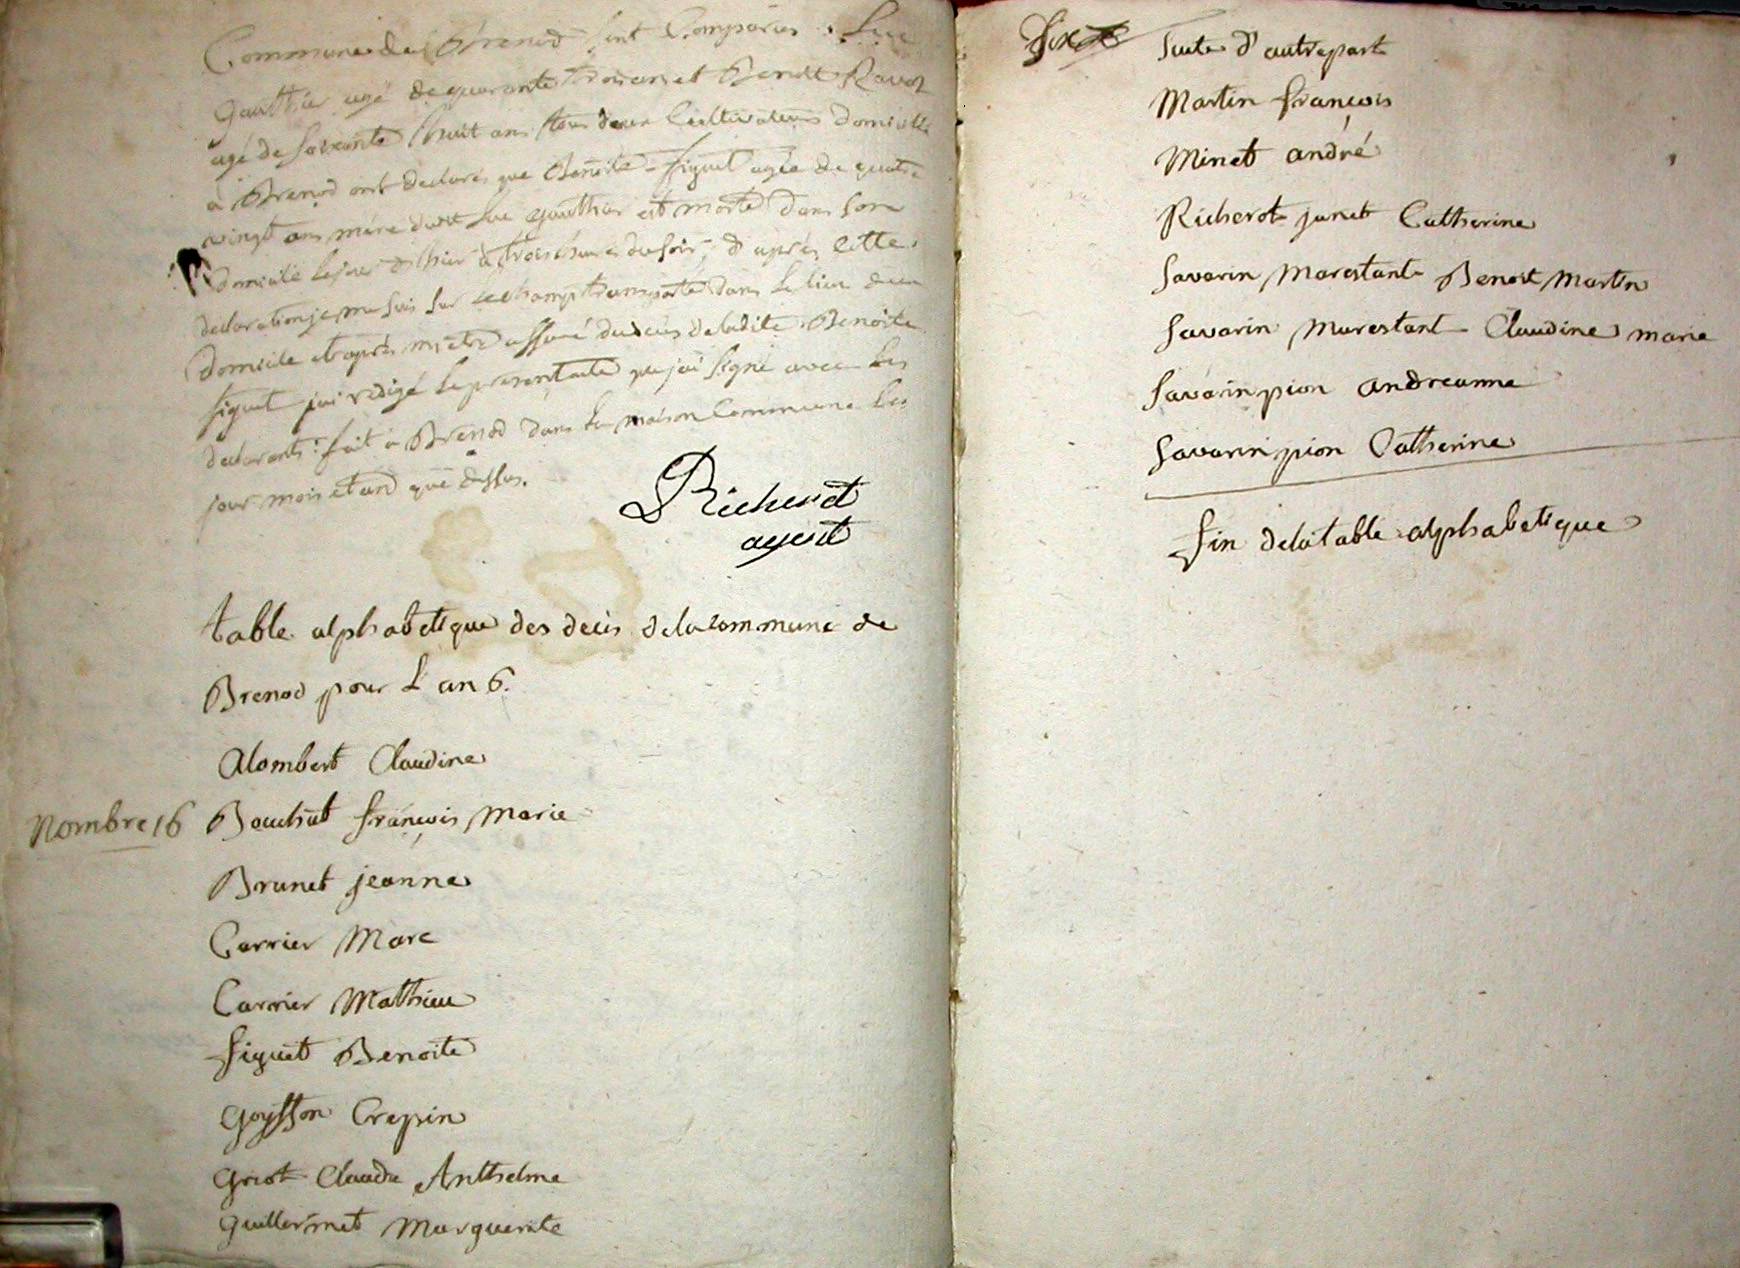 Commune de Brenod sont Comparus Luc
Gauthier agé de quarante trois ans et Benoit Ravoz
agé de soixante huit ans tous deux Cultivateurs domiciliés
à Brenod ont déclaré que Benoite figuet agée de quatre
vingt ans mére dudit Luc gauthier est morte dans son
domicile le jour d'hier à trois heures du soir, d'aprés cette
declaration je me suis sur le champ transporté dans le lieu du
domicile et aprés m'etre assuré du décés de ladite Benoite
figuet j'ai redigé le present acte que j'ai signé avec les
declarants. fait à Brenod dans la maison Commune les
jour mois et an que dessus.
Richerot
agent
table alphabetique des decés de la commune de
Brenod pour L'an 6.
Alombert Claudine
Nombre 16 Bouchut françois Marie
Brunet jeanne
Carrier Marc
Carrier Mathieu
figuet Benoite
Goysson Crepin
Griot Claude Anthelme
Guillermet Marguerite
Six
Suite d'autre part
Martin françois
Minet andré
Richerot junet Catherine
Savarin Marestant Benoit Martin
Savarin Marestant Claudine marie
Savarin pion andreanne
Savarin pion Catherine
fin de la table alphabetique